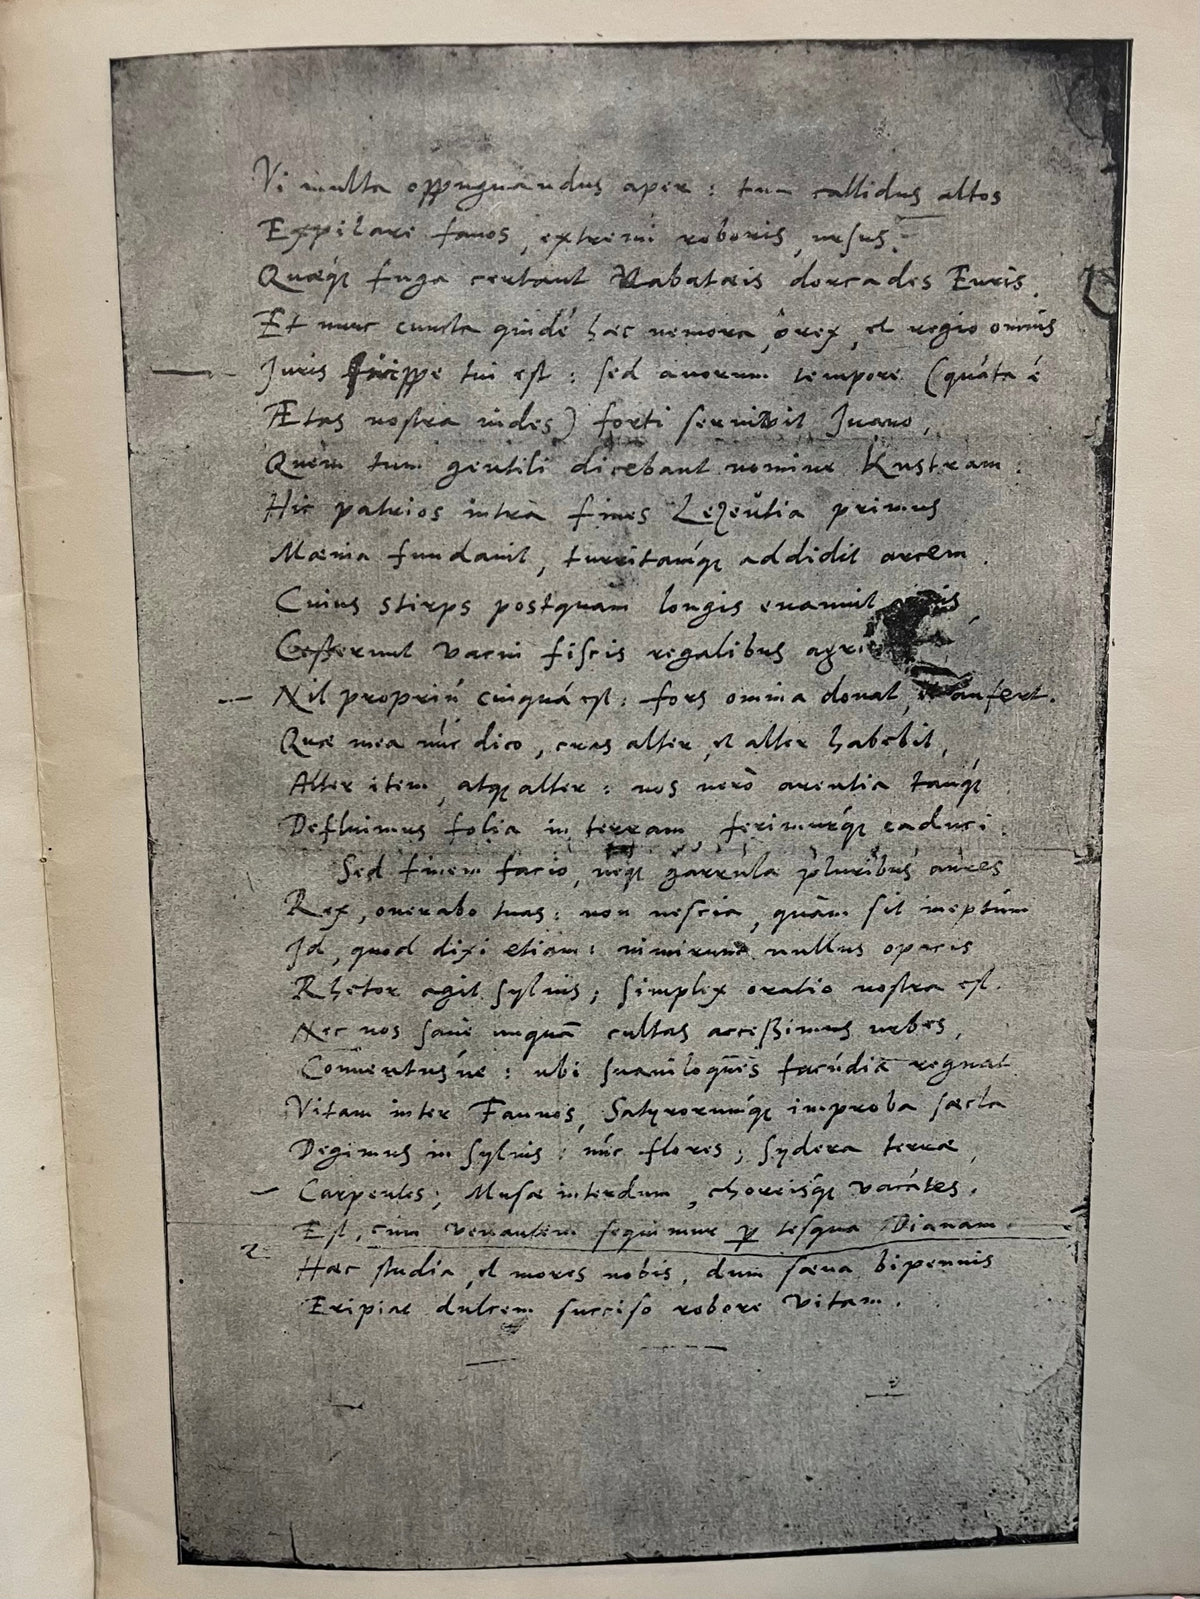 Vi multa oppugnandus aper: tum callidus altos
Expilare favos, extremi roboris, ursus.
Quæq; fuga certant Nabatæis dorcades Euris.
Et nunc cuncta quidē hæc nemora, ô rex, et regio omnis
Juris tui est: sed avorum tempore (quāta ē
Ætas nostra vides) forti servivit Juano,
Quem tum gentili dicebant nomine Kustram:
Hic patrios intrà fines Lezeùtia primus
Mœnia fundavit, turritamq́; addidit arcem.
Cuius stirps postquam longis evanuit
Cesserunt vacui fiscis regalibus agri
Nil propriū cuiquā est: fors omnia donat, et aufert.
Quæ mea nūc dico, cras alter, et alter habebit,
Alter item, atq; alter: nos verò arentia tanq́
Defluimus folia in terram, ferimurq́; caduci.
Sed finem facio, neq; garrula pluribus aures
Rex, onerabo tuas: non nescia, quàm sit ineptum
Id, quod dixi etiam: nimirum nullus opacis
Rhetor agit sylvis; simplex oratio nostra est.
Nec nos sanè unquā cultas accessimus urbes,
Conventusúe: ubi suaviloquēs facūdia regnat
Vitam inter Faunos, Satyrorumq́; improba sæcla
Degimus in sylvis: nūc flores, sydera terræ,
Carpentes; Musæ interdum, choreisq́; vacātes.
Est, cum venantem sequimur p tesqua Dianam.
Hæc studia, et mores nobis, dum sæva bipennis
Eripiat dulcem succiso robore vitam.